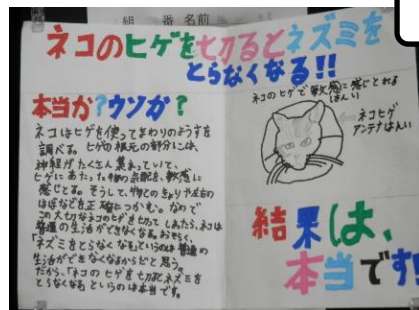 組 番 名前
ネコのヒゲを切るとネズミを
とらなくなる!!
本当か?ウソか?
ネコはヒゲを使ってまわりのようすを
調べる。ヒゲの根元の部分には、
神経がたくさん集まっていて、
ヒゲにあたった物の気配を、敏感に
感じとる。そうして、物とのきょりや左右の
はばなどを正確につかむ。なので
この大切なネコのヒゲを切ってしまったら、ネコは
普通の生活ができなくなる。おそらく、
「ネズミをとらなくなるというのは普通の
生活ができなくなるからだと思う。
だから、「ネコのヒゲを切るとネズミを
とらなくなるというのは本当です。
ネコのヒゲで敏感に感じとれる
はんい
ネコヒゲ
アンテナはんい
結果は、
本当です!